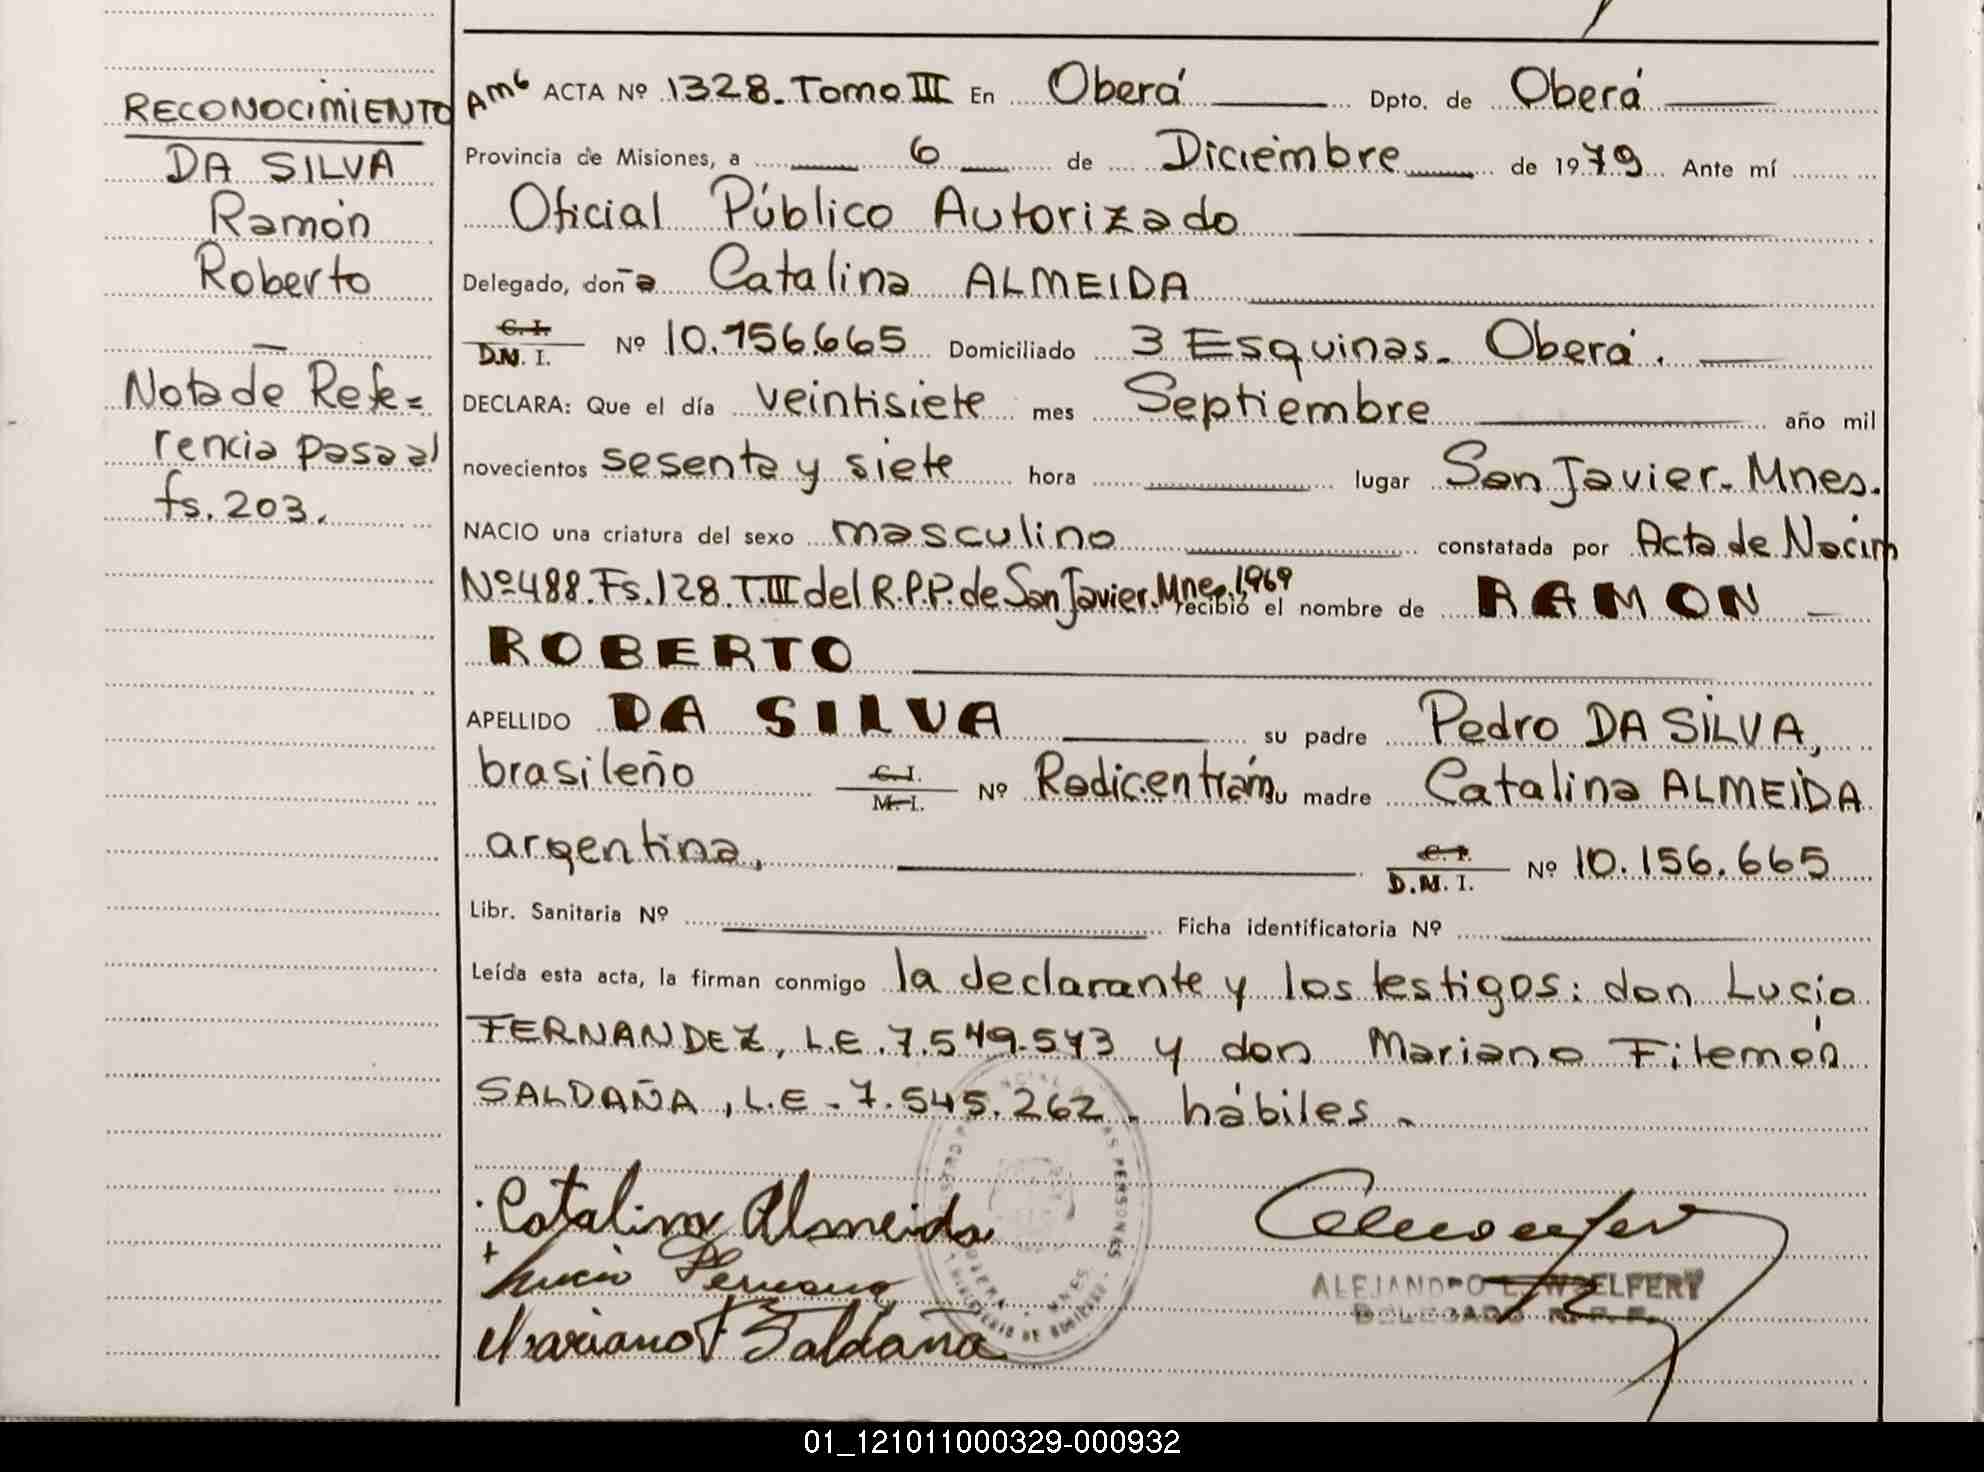 RECONOCIMIENTO
DA SILVA
Ramón
Roberto
Nota de Refe=
rencia pasa al
fs. 203.
ACTA Nº 1328. Tomo III En Oberá Dpto. de Oberá
Provincia de Misiones, a 6 de Diciembre de 1979 Ante mí
Oficial Público Autorizado
Delegado, doña Catalina ALMEIDA
C. I.
D.N. I. Nº 10.156.665 Domiciliado 3 Esquinas. Oberá.
DECLARA: Que el día veintisiete mes Septiembre año mil
novecientos sesenta y siete hora lugar San Javier. Mnes.
NACIO una criatura del sexo masculino constatada por Acta de Nacim
Nº 488. Fs. 128. T. III del R.P.P. de San Javier. Mnes. 1969 recibió el nombre de RAMON
ROBERTO
APELLIDO DA SILVA su padre Pedro DA SILVA,
brasileño C. I. M. I. Nº Radic. en trám. su madre Catalina ALMEIDA
argentina, C. I. D.N. I. Nº 10.156.665
Libr. Sanitaria Nº Ficha identificatoria Nº
Leída esta acta, la firman conmigo la declarante y los testigos: don Lucio
FERNANDEZ, L.E. 7.549.573 y don Mariano Filemón
SALDAÑA, L.E. 7.545.262. hábiles.
Catalina Almeida
Lucio
Mariano F Saldaña
DELEGADO R.P.P.
01_121011000329-000932